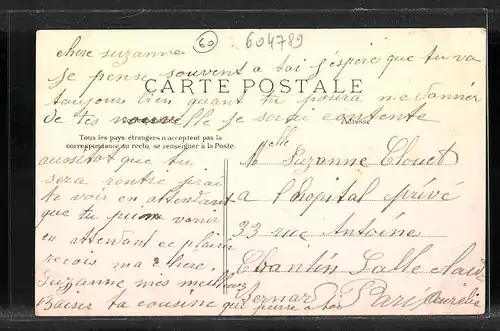 60 604789
chere suzanne
je pense souvent a toi j'espère que tu va
CARTE POSTALE
toujours bien quant tu poura me donner
de tes nouvelle je serai contente
Adresse
Tous les pays étrangers n'acceptent pas la
correspondance au recto, se renseigner à la Poste.
aussitot que tu
sera rentré j'irai
te voir en attendant
que tu puisse venir
en attendant ce plaisir
recois ma chere
Suzanne mes meilleurs
Baiser ta cousine qui pense a toi
Aurélie
Melle Suzanne Clouet
a l'hopital privé
33 rue Antoine
Chantin Salle Claude
Bernard Paris